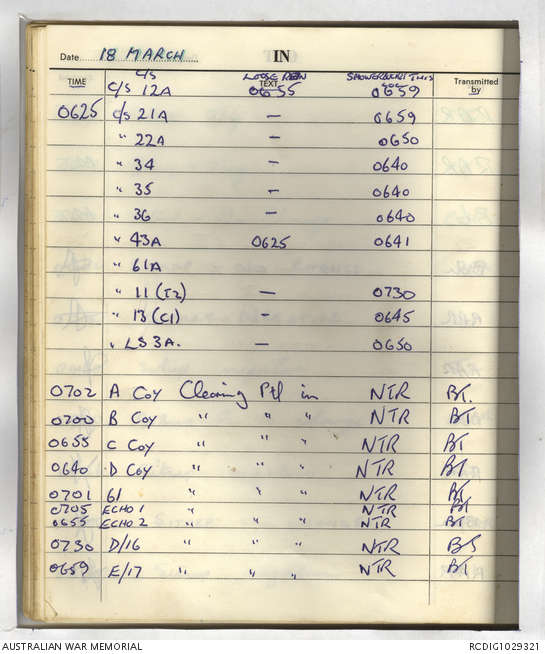 Date 18 MARCH IN
TIME C/S LOOSE TEXT Transmitted by
C/S 12A 0655 0659
0625 C/S 21A — 0659
" 22A — 0650
" 34 — 0640
" 35 — 0640
" 36 — 0640
" 43A 0625 0641
" 61A
" 11 (T2) — 0730
" 13 (C1) — 0645
" LS 3A. — 0650
0702 A Coy Clearing Ptl in NTR BT.
0700 B Coy " " " NTR BT
0655 C Coy " " " NTR BT
0640 D Coy " " " NTR BT.
0701 61 " " " NTR BT
0705 ECHO 1 " " " NTR BT
0655 ECHO 2 " " " NTR BT
0730 D/16 " " " NTR BS
0659 E/17 " " " NTR BT
AUSTRALIAN WAR MEMORIAL RCDIG1029321